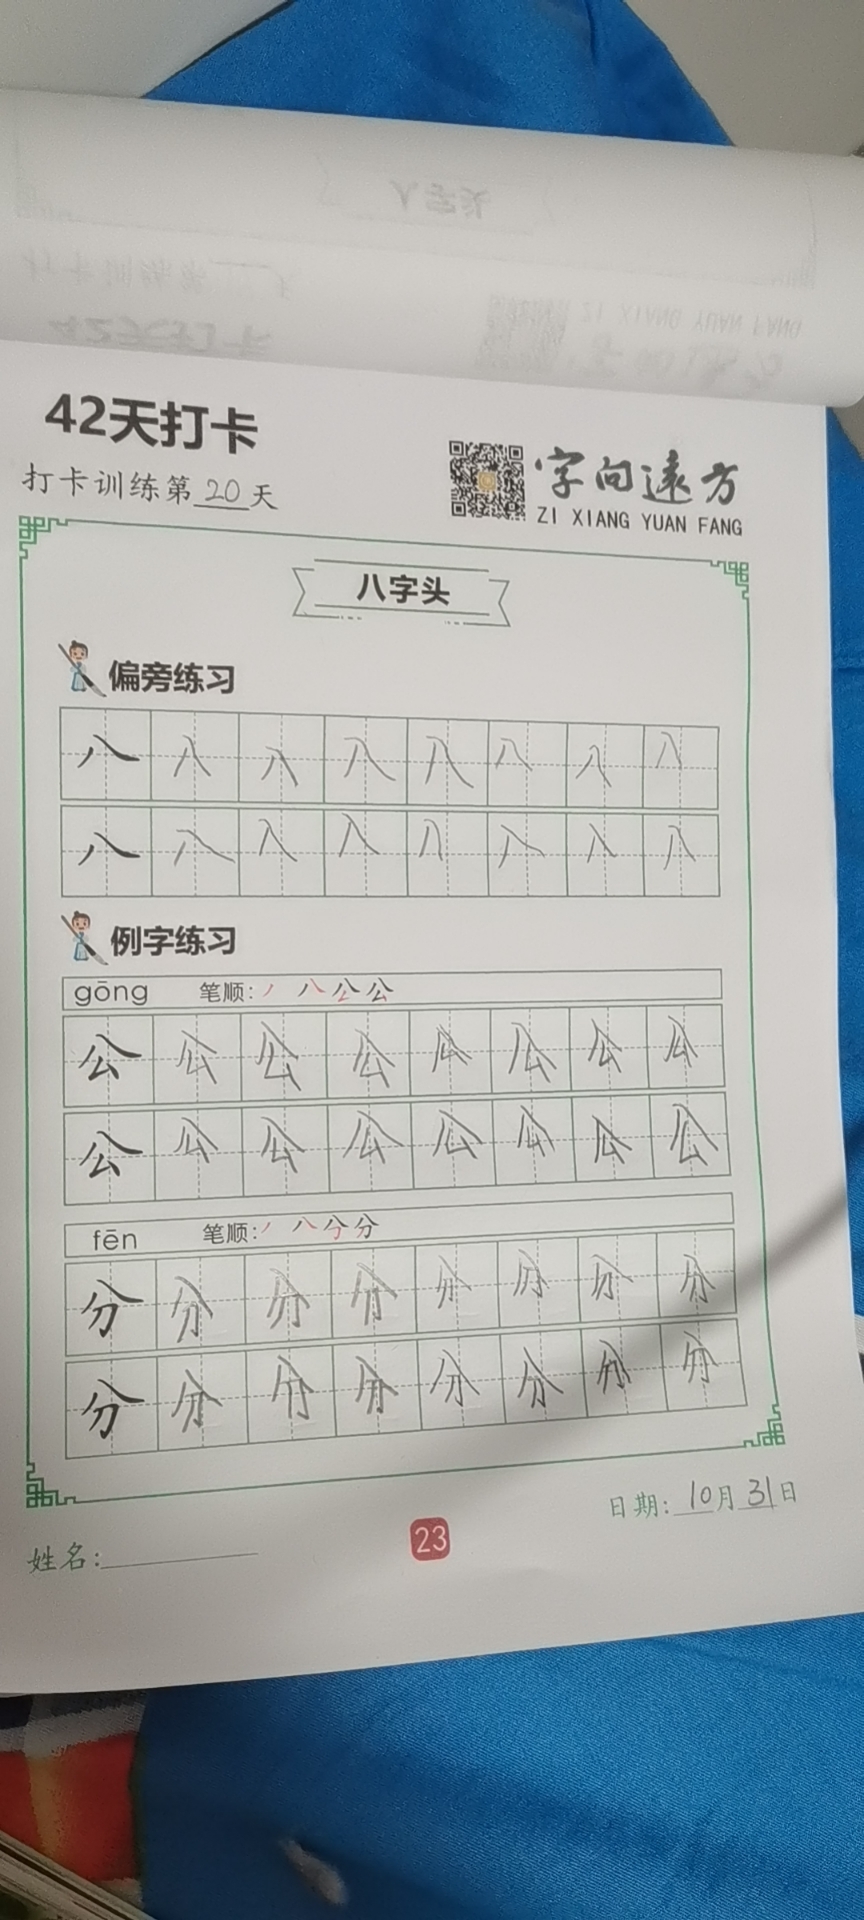 42天打卡
打卡训练第20天
字向远方
ZI XIANG YUAN FANG
八字头
偏旁练习
八 八 八 八 八 八 八 八
八 八 八 八 八 八 八 八
例字练习
gōng 笔顺:丿 八 公 公
公 公 公 公 公 公 公 公
公 公 公 公 公 公 公 公
fēn 笔顺:丿 八 分 分
分 分 分 分 分 分 分 分
分 分 分 分 分 分 分 分
日期:10月31日
姓名:
23